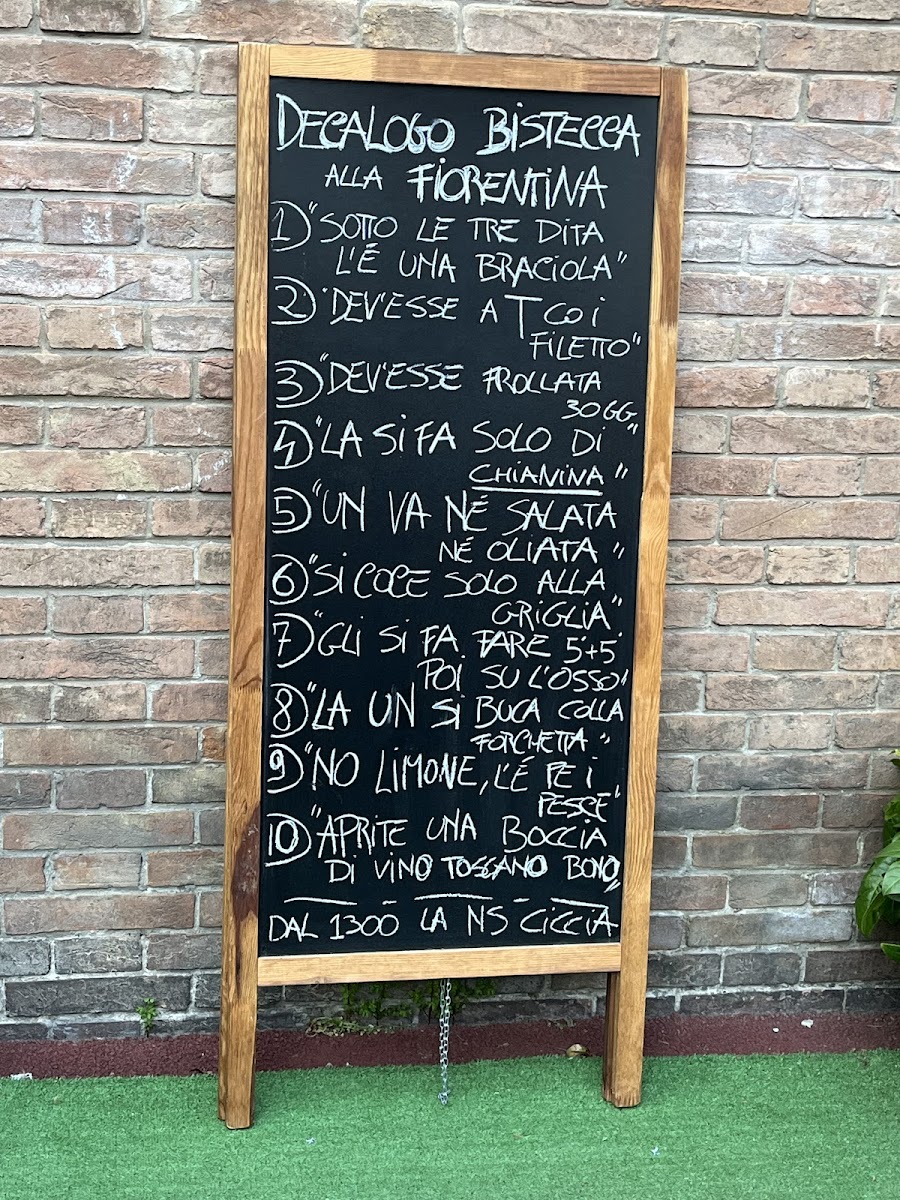 DECALOGO BISTECCA
ALLA FIORENTINA
1) "SOTTO LE TRE DITA
L'É UNA BRACIOLA"
2) "DEV'ESSE A T CO I
FILETTO"
3) "DEV'ESSE FROLLATA
30 GG."
4) "LA SI FA SOLO DI
CHIANINA"
5) "UN VA NÉ SALATA
NÉ OLIATA"
6) "SI COCE SOLO ALLA
GRIGLIA"
7) "GLI SI FA FARE 5'+5'
POI SU L'OSSO"
8) "LA UN SI BUCA COLLA
FORCHETTA"
9) "NO LIMONE, L'É PE I
PESCE"
10) "APRITE UNA BOCCIA
DI VINO TOSCANO BONO"
DAL 1300 LA NS CICCIA